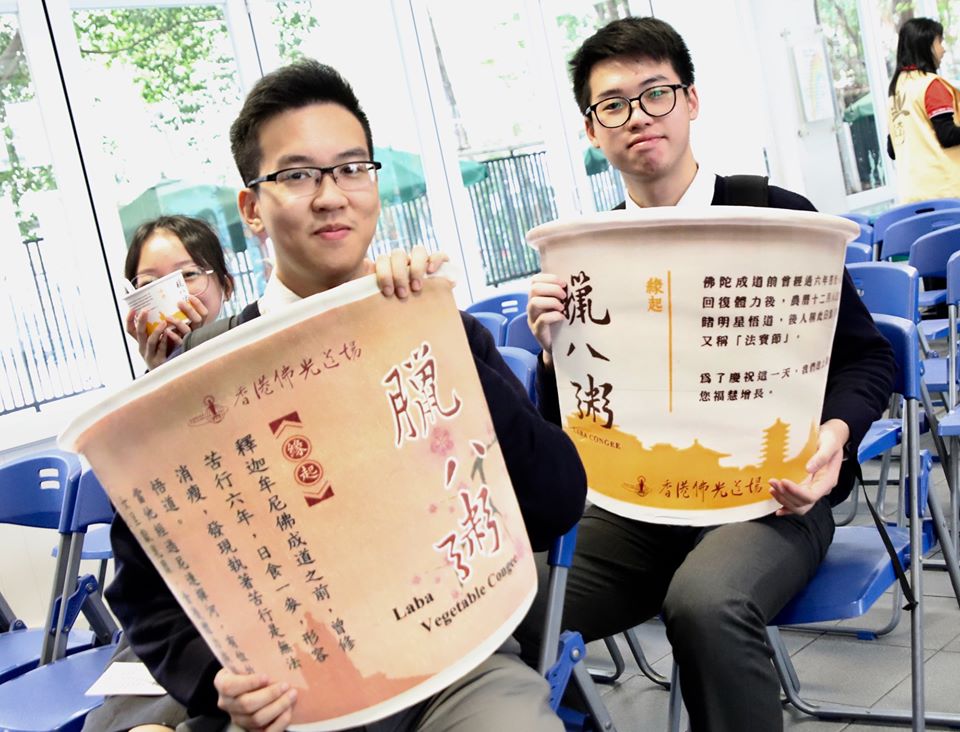 香港佛光道場
臘八粥
Laba
Vegetable Congee
緣起
釋迦牟尼佛成道之前,曾修
苦行六年,日食一麥,形容
消瘦,發現執著苦行是無法
悟道。
當他經過尼連禪河,有牧
臘八粥
LABA CONGEE
緣起
佛陀成道前曾經過六年苦
回復體力後,農曆十二月
睹明星悟道,後人稱此日
又稱「法寶節」。
為了慶祝這一天,我們
您福慧增長。
香港佛光道場